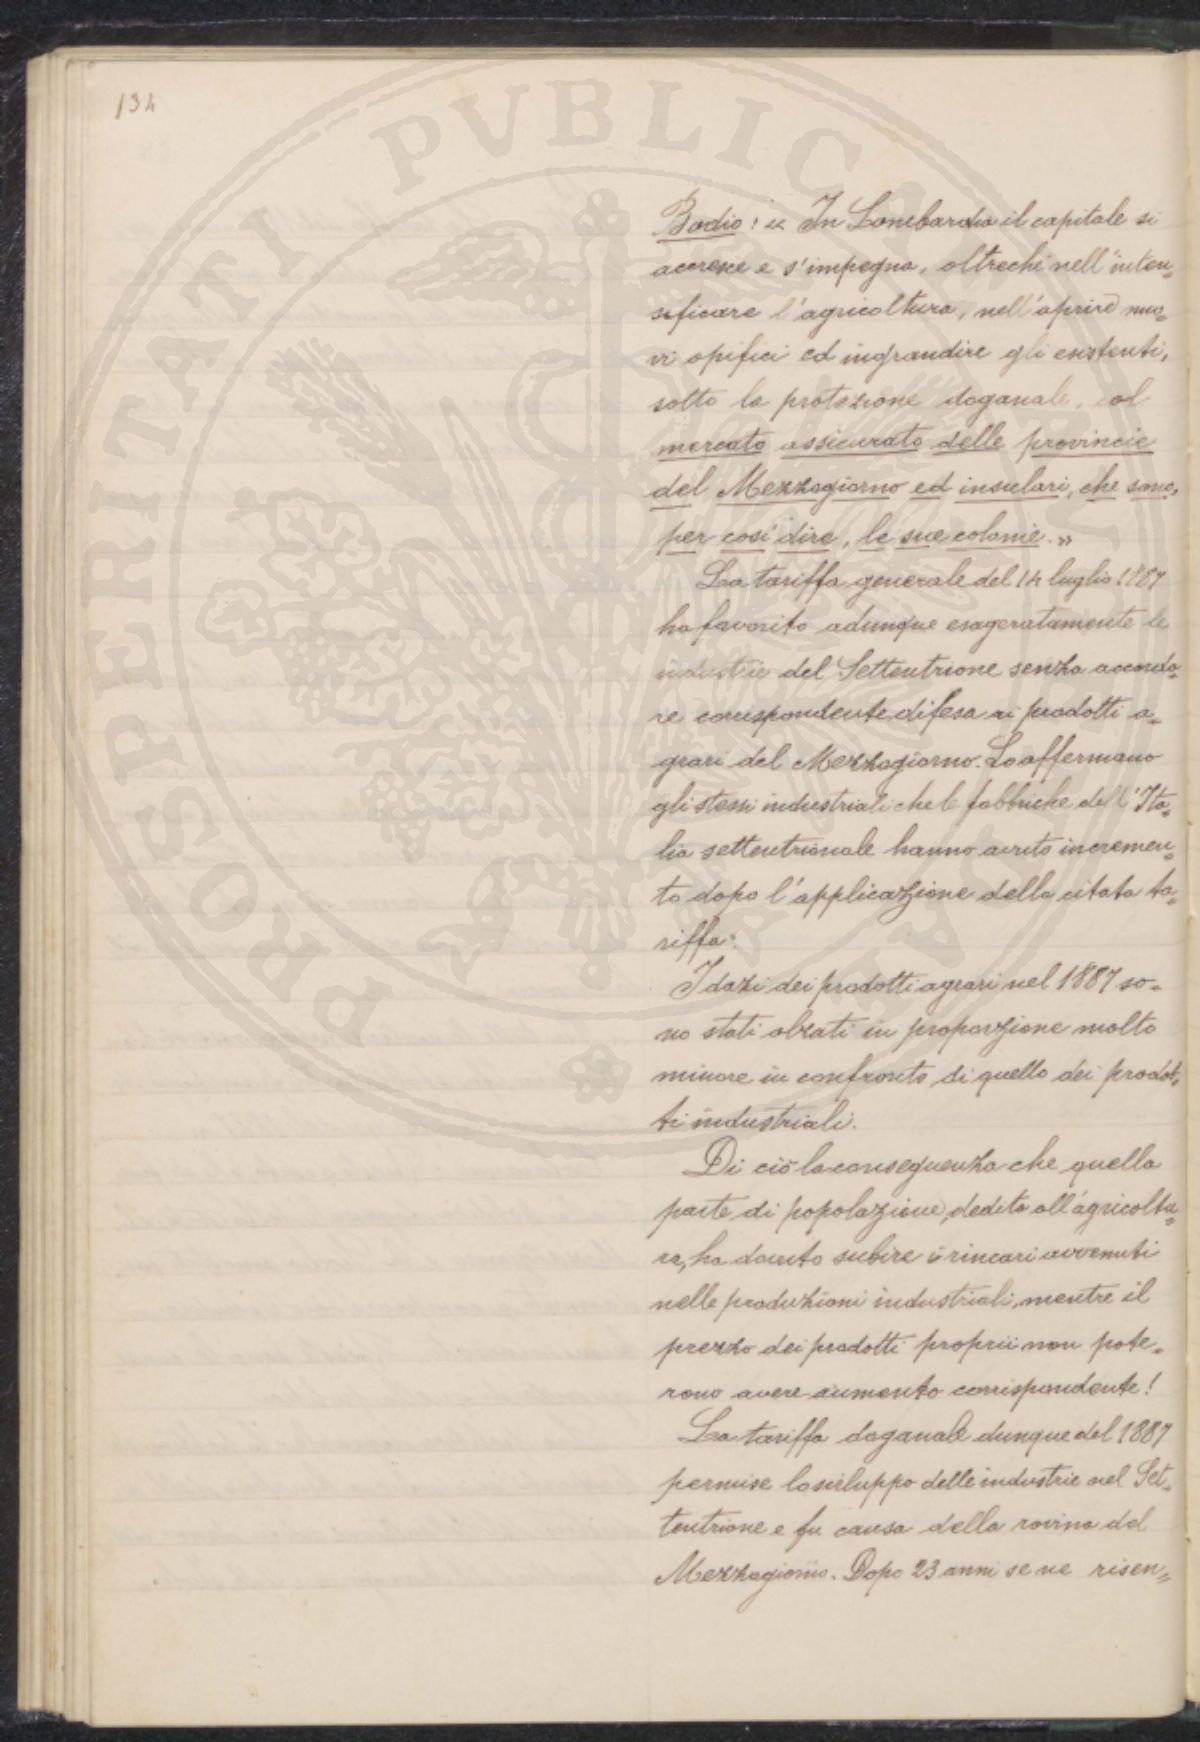 134
Bodio: « In Lombardia il capitale si
accresce e s'impegna, oltreché nell'inten=
sificare l'agricoltura, nell'aprire nuo=
vi opifici ed ingrandire gli esistenti,
sotto la protezione doganale, col
mercato assicurato delle provincie
del Mezzogiorno ed insulari, che sono,
per così dire, le sue colonie. »
La tariffa generale del 14 luglio 1887
ha favorito adunque esageratamente le
industrie del Settentrione senza accorda=
re corrispondente difesa ai prodotti a=
grari del Mezzogiorno. Lo affermano
gli stessi industriali che le fabbriche dell'Ita=
lia settentrionale hanno avuto incremen=
to dopo l'applicazione della citata ta=
riffa.
I dazi dei prodotti agrari nel 1887 so=
no stati alzati in proporzione molto
minore in confronto di quello dei prodot=
ti industriali.
Di ciò la conseguenza che quella
parte di popolazione, dedita all'agricoltu=
ra, ha dovuto subire i rincari avvenuti
nelle produzioni industriali, mentre il
prezzo dei prodotti proprii non pote=
rono avere aumento corrispondente!
La tariffa doganale dunque del 1887
permise lo sviluppo delle industrie nel Set=
tentrione e fu causa della rovina del
Mezzogiorno. Dopo 23 anni se ne risen=
PROSPERITATI PVBLICAE